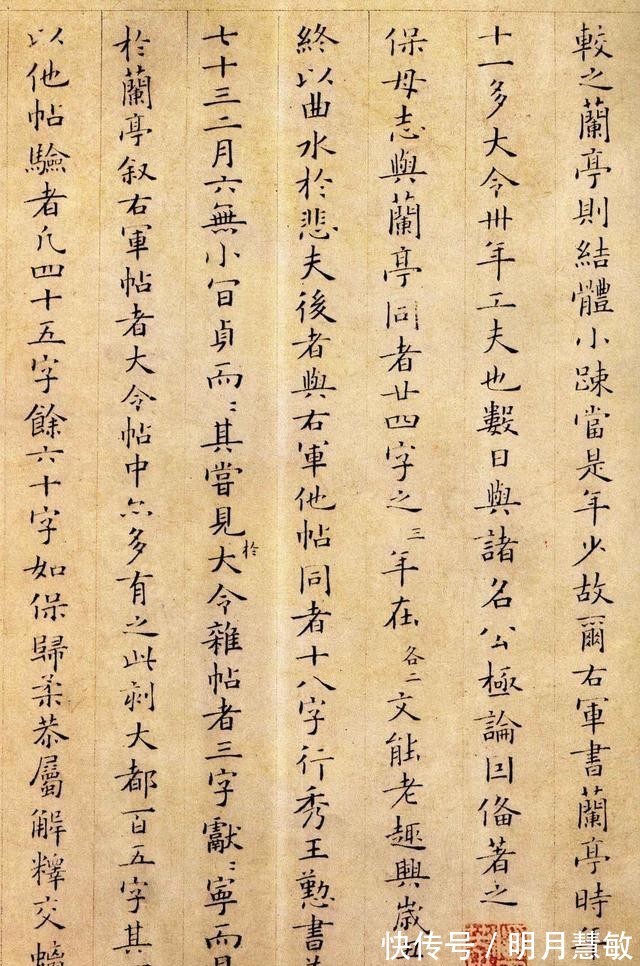 較之蘭亭則結體小疎當是年少故爾右軍書蘭亭時年
十一多大令卅年工夫也數日與諸名公極論因俻著之
保母志與蘭亭同者廿四字之三年在各二文能老趣興歲
終以曲水於悲夫後者與右軍他帖同者十八字行秀王懃書
七十三二月六無小百貞而〻其嘗見於大令雜帖者三字獻〻寧而
於蘭亭叙右軍帖者大令帖中亦多有之此刻大都一百五字其
以他帖驗者凡四十五字餘六十字如保歸柔恭屬解釋交螭
快传号 / 明月慧敏